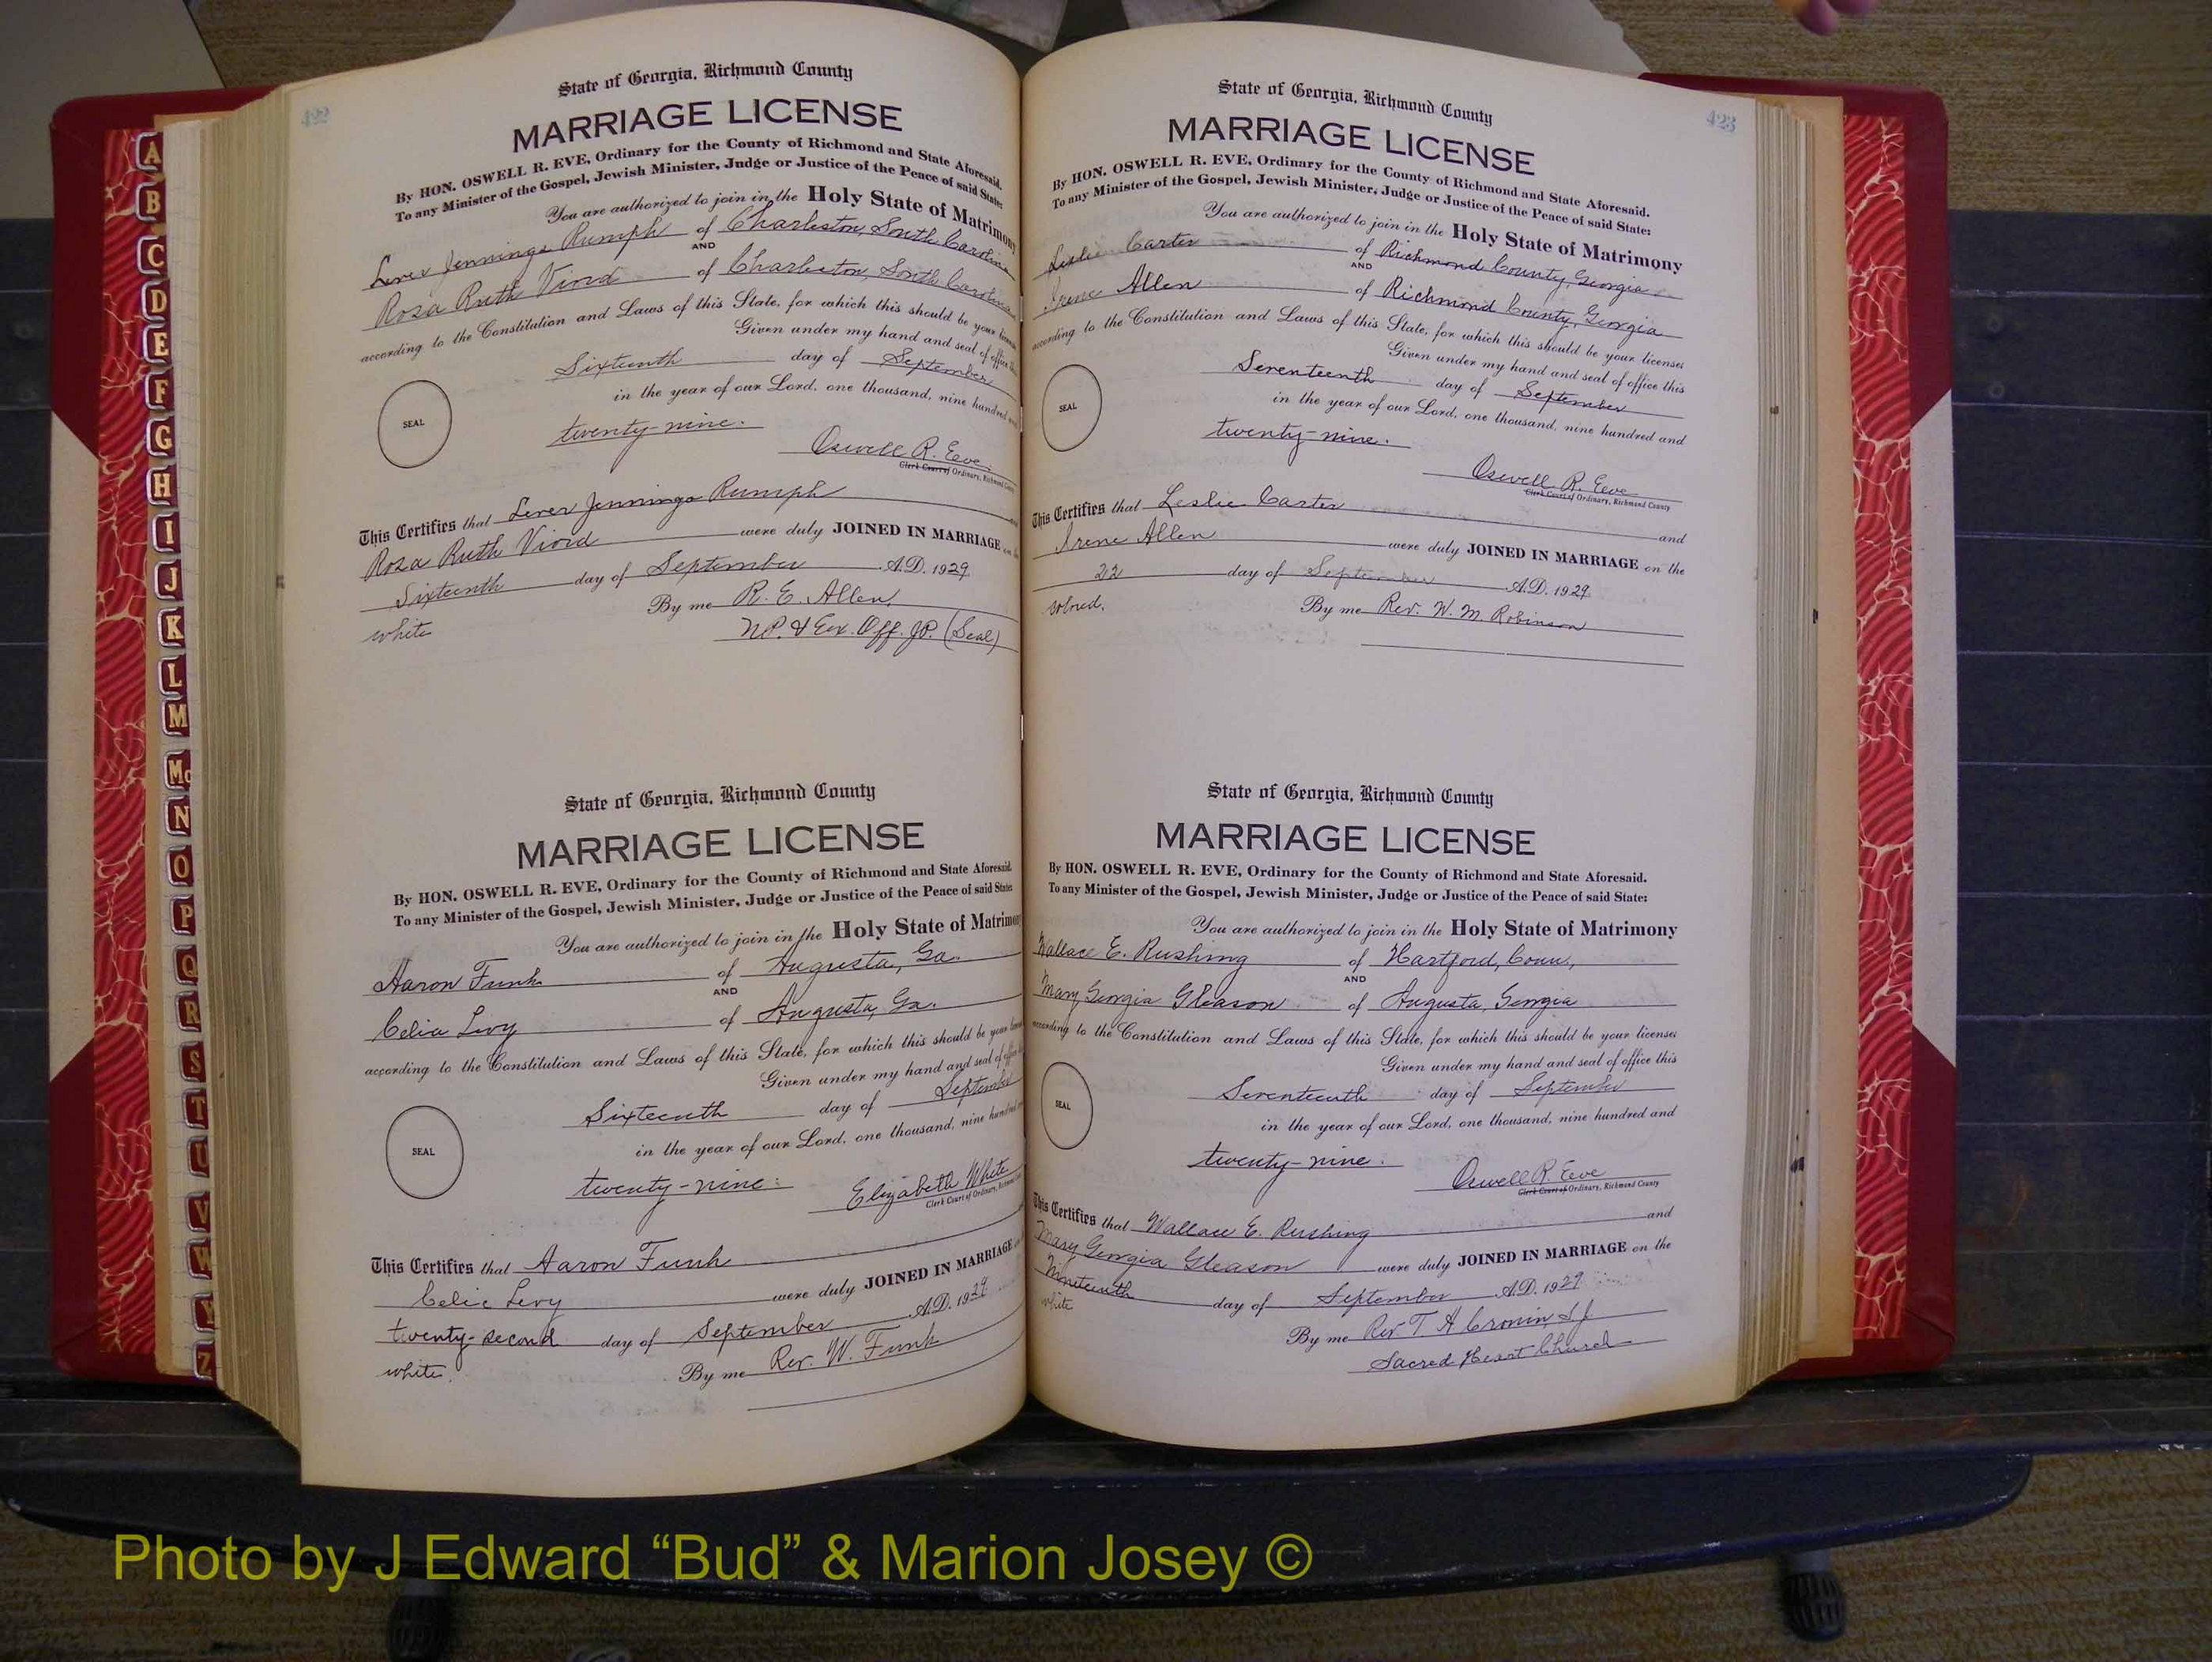 422
State of Georgia, Richmond County
MARRIAGE LICENSE
By HON. OSWELL R. EVE, Ordinary for the County of Richmond and State Aforesaid.
To any Minister of the Gospel, Jewish Minister, Judge or Justice of the Peace of said State:
You are authorized to join in the Holy State of Matrimony
Lever Jennings Rumph of Charleston, South Carolina
AND
Rosa Ruth Viord of Charleston, South Carolina
according to the Constitution and Laws of this State, for which this should be your license
Given under my hand and seal of office this
Sixteenth day of September
in the year of our Lord, one thousand, nine hundred and
SEAL
twenty-nine.
Oswell R. Eve
Clerk Court of Ordinary, Richmond County
This Certifies that Lever Jennings Rumph and
Rosa Ruth Viord were duly JOINED IN MARRIAGE on the
Sixteenth day of September A.D. 1929
By me R. E. Allen,
white N.P. & Ex. Off. J.P. (Seal)
State of Georgia, Richmond County
MARRIAGE LICENSE
By HON. OSWELL R. EVE, Ordinary for the County of Richmond and State Aforesaid.
To any Minister of the Gospel, Jewish Minister, Judge or Justice of the Peace of said State:
You are authorized to join in the Holy State of Matrimony
Aaron Funk of Augusta, Ga.
AND
Celia Levy of Augusta, Ga.
according to the Constitution and Laws of this State, for which this should be your license
Given under my hand and seal of office
Sixteenth day of September
in the year of our Lord, one thousand, nine hundred
SEAL
twenty-nine.
Elizabeth White
Clerk Court of Ordinary, Richmond
This Certifies that Aaron Funk
Celia Levy were duly JOINED IN MARRIAGE
twenty-second day of September A.D. 1929
white. By me Rev. W. Funk
423
State of Georgia, Richmond County
MARRIAGE LICENSE
By HON. OSWELL R. EVE, Ordinary for the County of Richmond and State Aforesaid.
To any Minister of the Gospel, Jewish Minister, Judge or Justice of the Peace of said State:
You are authorized to join in the Holy State of Matrimony
Leslie Carter of Richmond County, Georgia
AND
Irene Allen of Richmond County, Georgia
according to the Constitution and Laws of this State, for which this should be your license
Given under my hand and seal of office this
Seventeenth day of September
in the year of our Lord, one thousand, nine hundred and
SEAL
twenty-nine.
Oswell R. Eve
Clerk Court of Ordinary, Richmond County
This Certifies that Leslie Carter and
Irene Allen were duly JOINED IN MARRIAGE on the
22 day of September A.D. 1929
colored. By me Rev. W. M. Robinson
State of Georgia, Richmond County
MARRIAGE LICENSE
By HON. OSWELL R. EVE, Ordinary for the County of Richmond and State Aforesaid.
To any Minister of the Gospel, Jewish Minister, Judge or Justice of the Peace of said State:
You are authorized to join in the Holy State of Matrimony
Wallace E. Rushing of Hartford, Conn.,
AND
Mary Georgia Gleason of Augusta, Georgia
according to the Constitution and Laws of this State, for which this should be your license
Given under my hand and seal of office this
Seventeenth day of September
in the year of our Lord, one thousand, nine hundred and
SEAL
twenty-nine.
Oswell R. Eve
Clerk Court of Ordinary, Richmond County
This Certifies that Wallace E. Rushing and
Mary Georgia Gleason were duly JOINED IN MARRIAGE on the
Nineteenth day of September A.D. 1929
white
By me Rev T A Cronin, S.J.
Sacred Heart Church
A
B
C
D
E
F
G
H
I
J
K
L
M
Mc
N
O
P
Q
R
S
T
U
V
W
Y
Z
Photo by J Edward “Bud” & Marion Josey ©